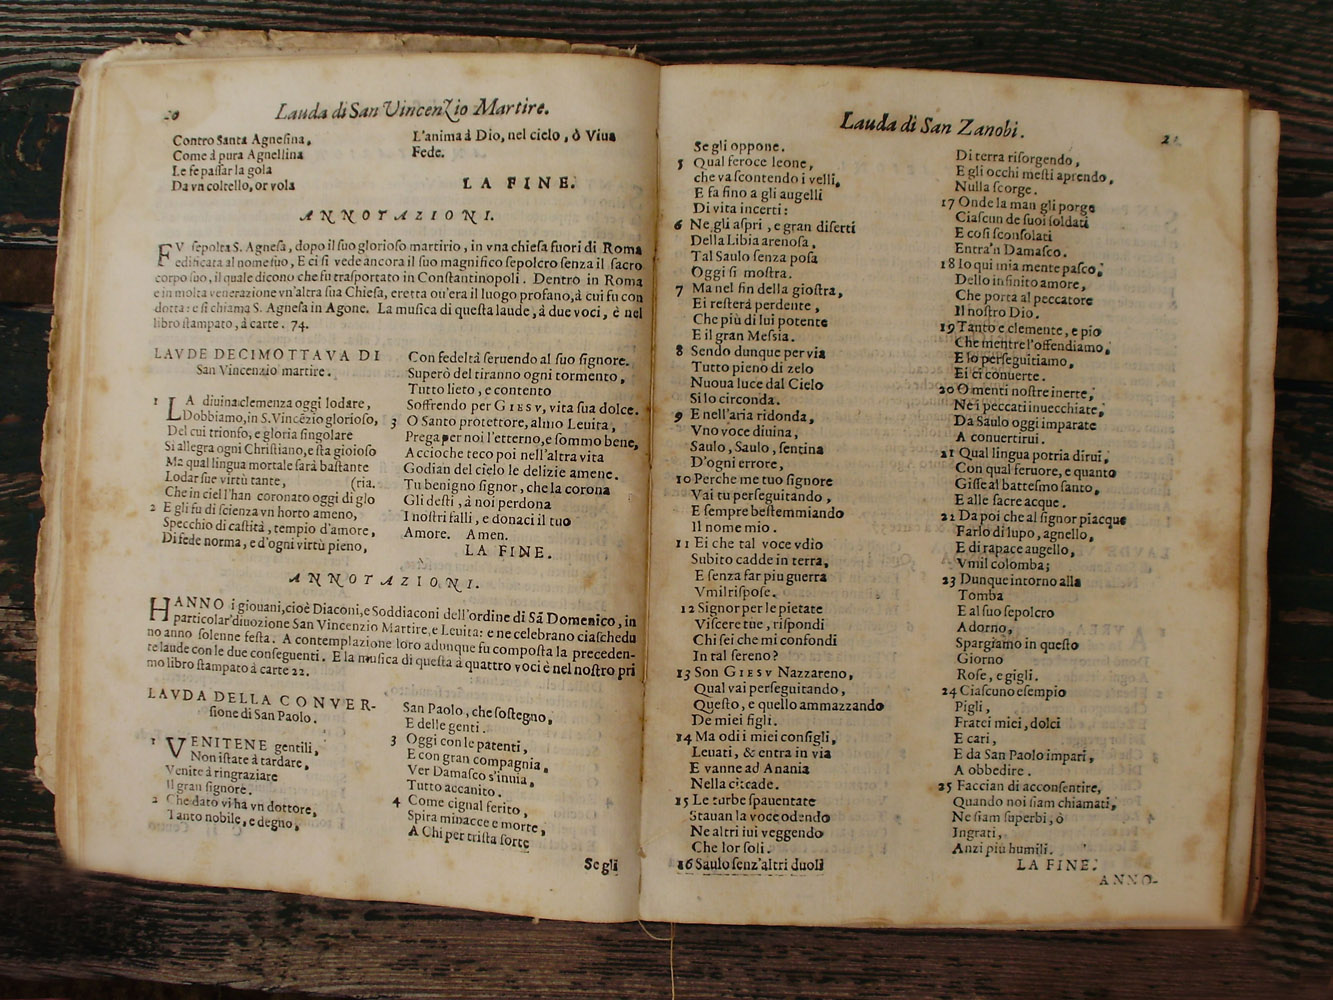 20
Lauda di San Vincenzio Martire.
Contro Santa Agnesina,
Come à pura Agnellina
Le fe passar la gola
Da vn coltello, or vola
L'anima à Dio, nel cielo, ò Viua
Fede.
LA FINE.
ANNOTAZIONI.
FV sepolta S. Agnesa, dopo il suo glorioso martirio, in vna chiesa fuori di Roma
edificata al nome suo, E ci si vede ancora il suo magnifico sepolcro senza il sacro
corpo suo, il quale dicono che fu trasportato in Constantinopoli. Dentro in Roma
e in molta venerazione vn'altra sua Chiesa, eretta ou'era il luogo profano, à cui fu con
dotta: e si chiama S. Agnesa in Agone. La musica di questa laude, à due voci, è nel
libro stampato, à carte. 74.
LAVDE DECIMOTTAVA DI
San Vincenzio martire.
1 LA diuina clemenza oggi lodare,
Dobbiamo, in S. Vincẽzio glorioso,
Del cui trionfo, e gloria singolare
Si allegra ogni Christiano, e sta gioioso
Ma qual lingua mortale sarà bastante
Lodar sue virtù tante, (ria.
Che in ciel l'han coronato oggi di glo
2 E gli fu di scienza vn horto ameno,
Specchio di castità, tempio d'amore,
Di fede norma, e d'ogni virtù pieno,
Con fedeltà seruendo al suo signore.
Superò del tiranno ogni tormento,
Tutto lieto, e contento
Soffrendo per GIESV, vita sua dolce.
3 O Santo protettore, almo Leuita,
Prega per noi l'etterno, e sommo bene,
Accioche teco poi nell'altra vita
Godian del cielo le delizie amene.
Tu benigno signor, che la corona
Gli desti, à noi perdona
I nostri falli, e donaci il tuo
Amore. Amen.
LA FINE.
ANNOTAZIONI.
HANNO i giouani, cioè Diaconi, e Soddiaconi dell'ordine di Sã Domenico, in
particolar diuozione San Vincenzio Martire, e Leuita: e ne celebrano ciaschedu
no anno solenne festa. A contemplazione loro adunque fu composta la preceden-
te laude con le due conseguenti. E la musica di questa à quattro voci è nel nostro pri
mo libro stampato à carte 22.
LAVDA DELLA CONVER-
sione di San Paolo.
1 VENITENE gentili,
Non istate à tardare,
Venite à ringraziare
Il gran signore.
2 Che dato vi ha vn dottore,
Tanto nobile, e degno,
San Paolo, che sostegno,
E delle genti.
3 Oggi con le patenti,
E con gran compagnia,
Ver Damasco s'inuia,
Tutto accanito.
4 Come cignal ferito,
Spira minacce e morte,
A Chi per trista sorte
Se gli
Lauda di San Zanobi.
Se gli oppone.
5 Qual feroce leone,
che va scontendo i velli,
E fa fino a gli augelli
Di vita incerti:
6 Ne gli aspri, e gran diserti
Della Libia arenosa,
Tal Saulo senza posa
Oggi si mostra.
7 Ma nel fin della giostra,
Ei resterà perdente,
Che più di lui potente
E il gran Messia.
8 Sendo dunque per via
Tutto pieno di zelo
Nuoua luce dal Cielo
Si lo circonda.
9 E nell'aria ridonda,
Vno voce diuina,
Saulo, Saulo, sentina
D'ogni errore,
10 Perche me tuo signore
Vai tu perseguitando,
E sempre bestemmiando
Il nome mio.
11 Ei che tal voce vdio
Subito cadde in terra,
E senza far piu guerra
Vmil rispose.
12 Signor per le pietate
Viscere tue, rispondi
Chi sei che mi confondi
In tal sereno?
13 Son GIESV Nazzareno,
Qual vai perseguitando,
Questo, e quello ammazzando
De miei figli.
14 Ma odi i miei consigli,
Leuati, & entra in via
E vanne ad Anania
Nella cittade.
15 Le turbe spauentate
Stauan la voce odendo
Ne altri iui veggendo
Che lor soli.
16 Saulo senz'altri duoli
Di terra risorgendo,
E gli occhi mesti aprendo,
Nulla scorge.
17 Onde la man gli porge
Ciascun de suoi soldati
E così sconsolati
Entra'n Damasco.
18 Io qui mia mente pasco,
Dello infinito amore,
Che porta al peccatore
Il nostro Dio.
19 Tanto e clemente, e pio
Che mentre l'offendiamo,
E lo perseguitiamo,
Ei ci conuerte.
20 O menti nostre inerte,
Ne i peccati inuecchiate,
Da Saulo oggi imparate
A conuertirui.
21 Qual lingua potria dirui,
Con qual feruore, e quanto
Gisse al battesmo santo,
E alle sacre acque.
22 Da poi che al signor piacque
Farlo di lupo, agnello,
E di rapace augello,
Vmil colomba;
23 Dunque intorno alla
Tomba
E al suo sepolcro
Adorno,
Spargiamo in questo
Giorno
Rose, e gigli.
24 Ciascuno esempio
Pigli,
Fratei miei, dolci
E cari,
E da San Paolo impari,
A obbedire.
25 Faccian di acconsentire,
Quando noi siam chiamati,
Ne siam superbi, ò
Ingrati,
Anzi più humili.
LA FINE.
ANNO-